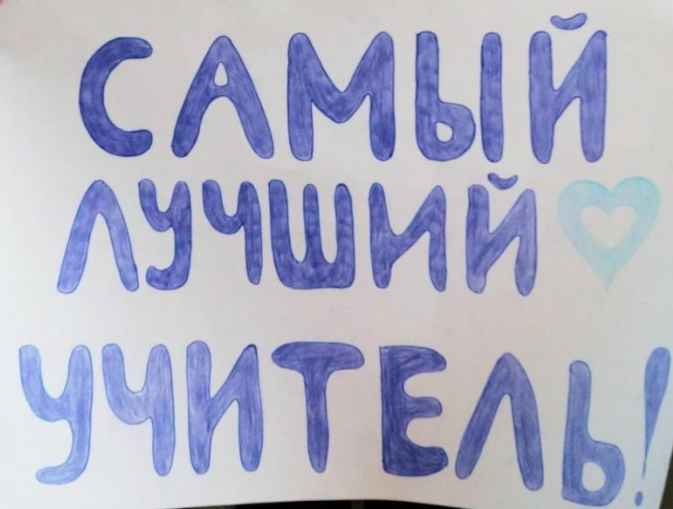 САМЫЙ
ЛУЧШИЙ
УЧИТЕЛЬ!